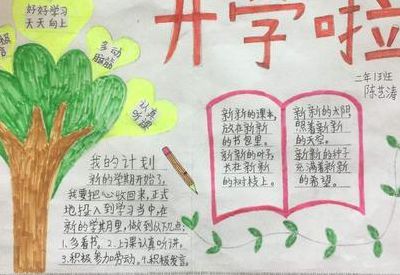 开学啦
二年13班
陈艺涛
好好学习
天天向上
极
言
多动
脑筋
认真
听课
我的计划
新的学期开始了,
我要把心收回来,正式
地投入到学习当中,在
新的学期里,做到以下几点:
1.多看书。2.上课认真听讲,
3.积极参加劳动。4.积极发言。
新新的课本,
放在新新
的书包里。
新新的叶子,
长在新新
的树枝上。
新新的太阳
照着新新
的天空。
新新的种子
充满着新新
的希望。